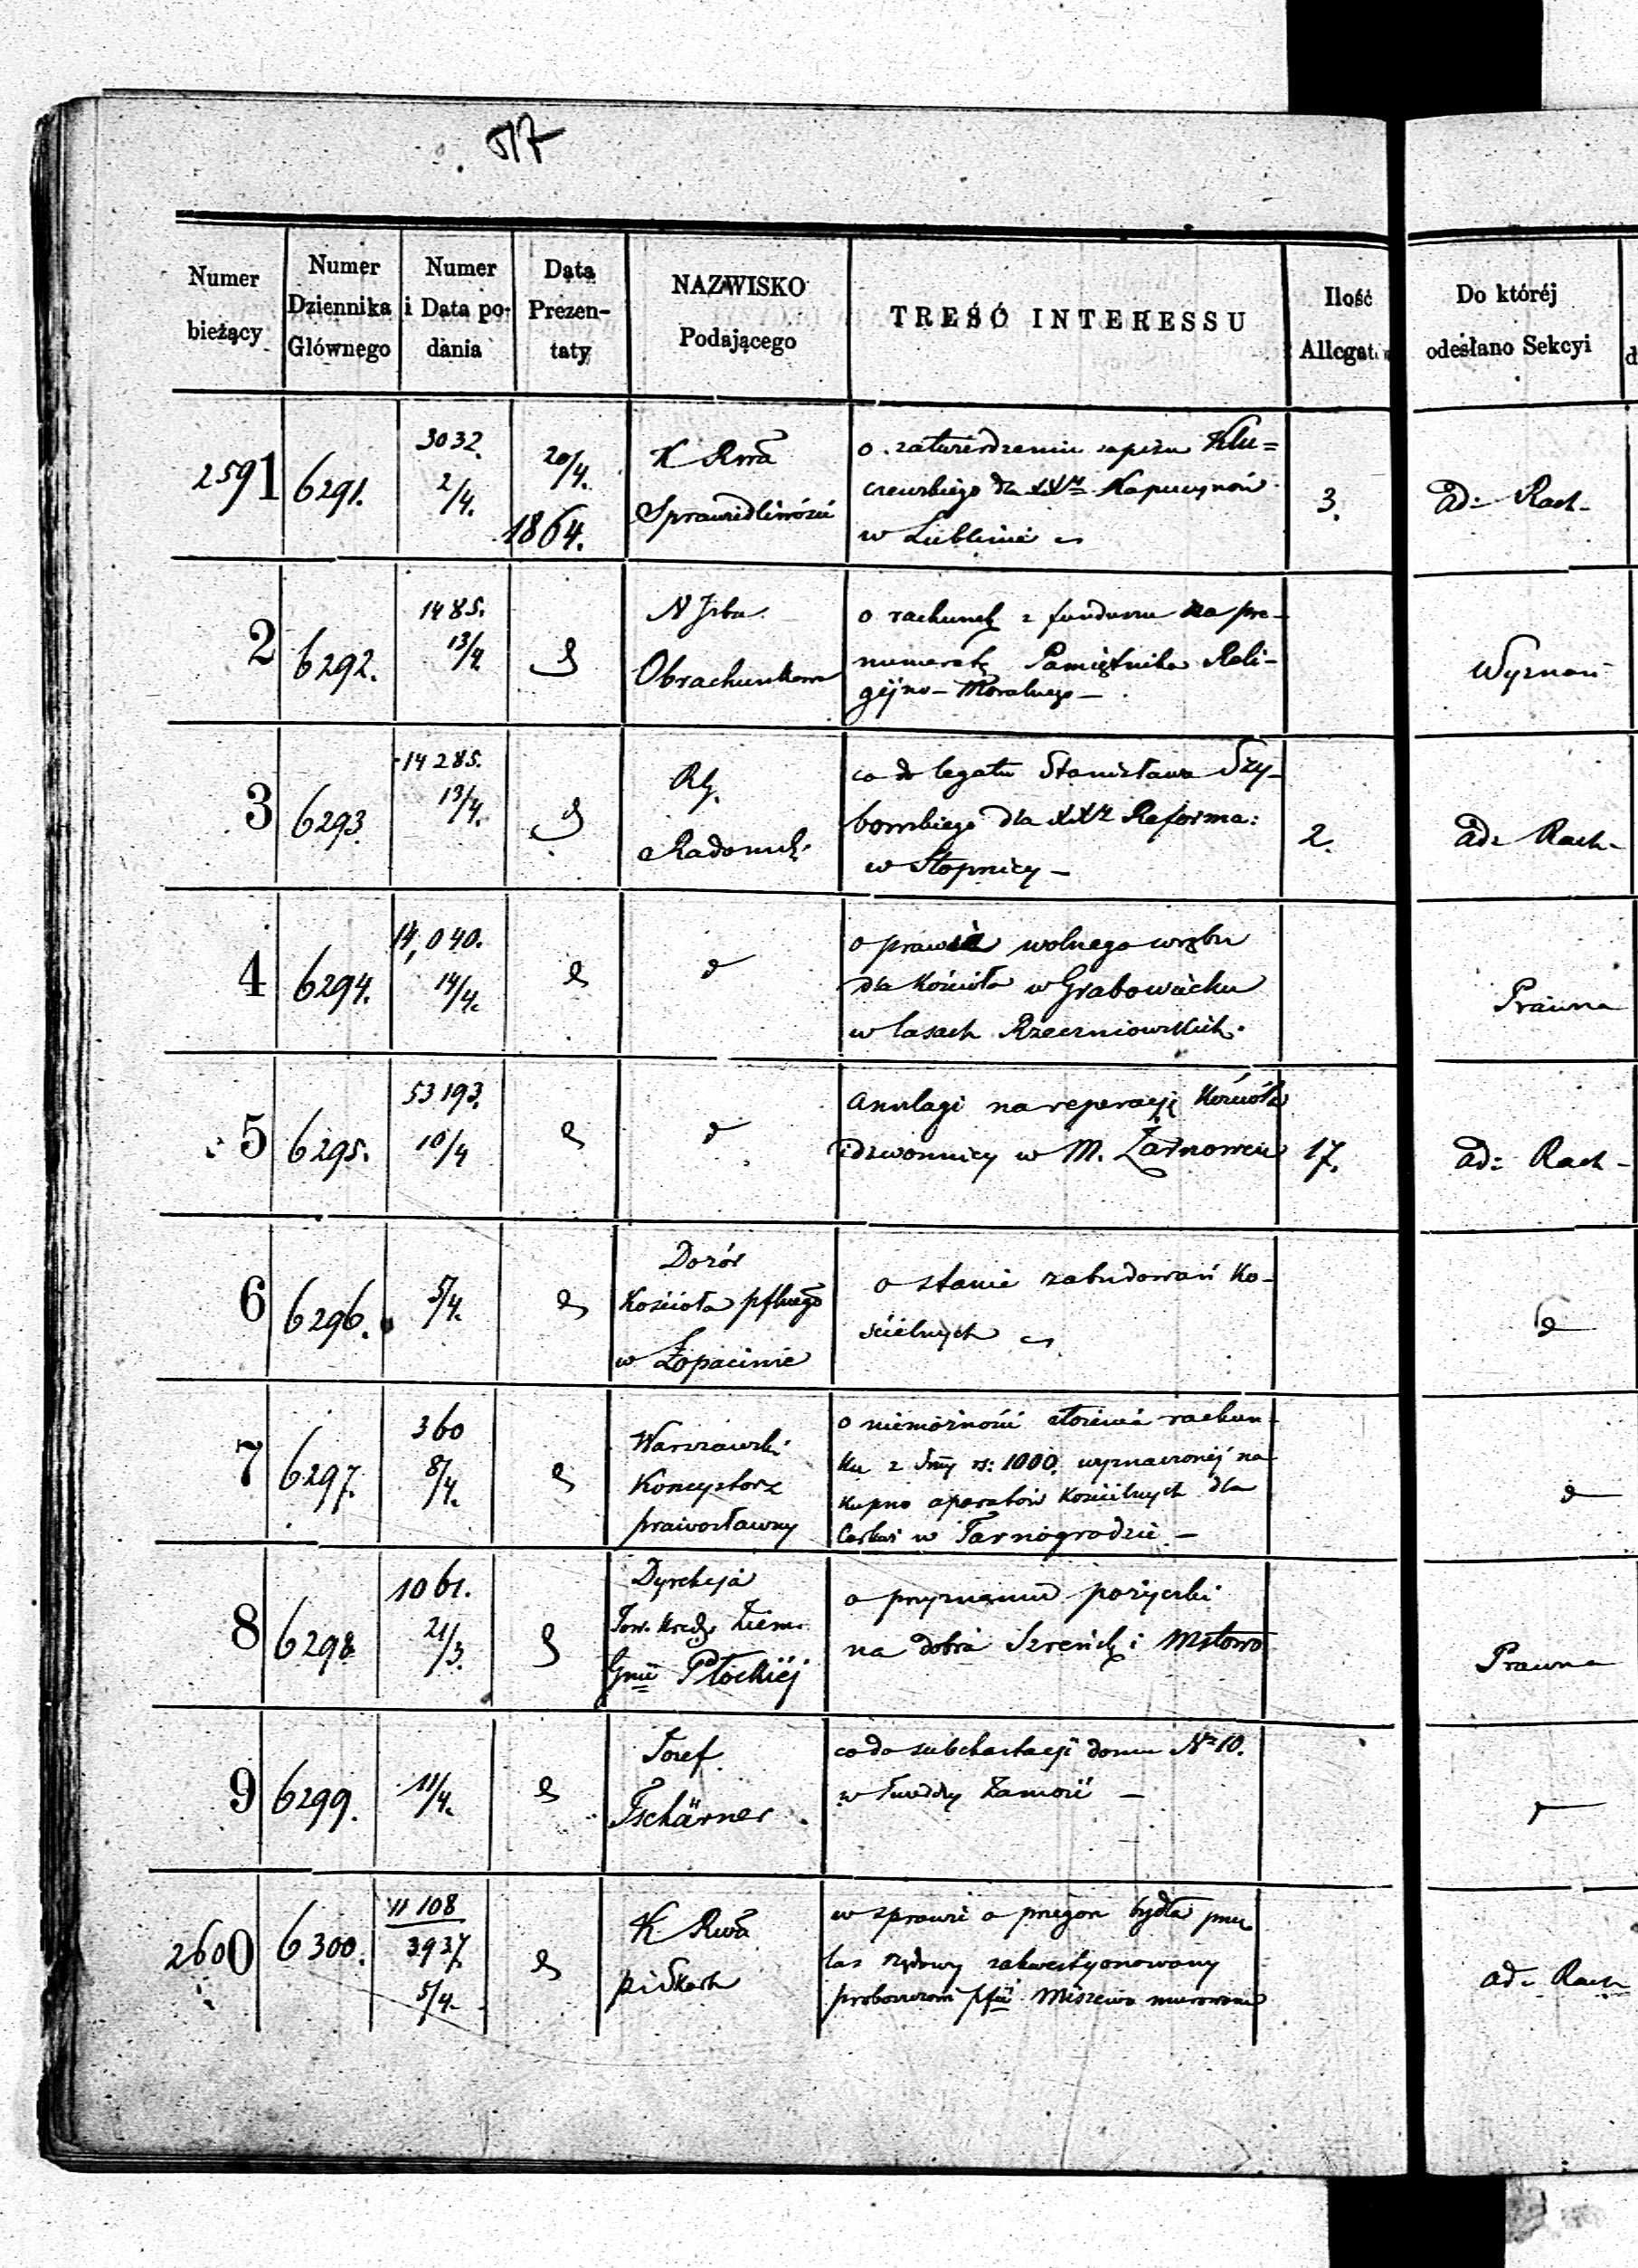 517
Numer bieżący
Numer Dziennika Głównego
Numer i Data podania
Data Prezentaty
NAZWISKO Podającego
TREŚĆ INTERESSU
Ilość Allegat.
Do któréj odesłano Sekcyi
2591 6291. 3032. 2/4. 20/4. 1864.
K Rwa
Sprawiedliwości
o zatwierdzenie zapisu Klu=
czewskiego dla XXw Kapucynów
w Lublinie
3.
ad: Rach-
2 6292. 1485. 13/4
N Izba
Obrachunkowa
o rachunek z funduszu na pre-
numeratę Pamiętnika Reli-
gijno-Moralnego-
Wyznań
3 6293. 14285. 13/4.
Rg.
Radomski
co do legatu Stanisława Szy-
bowskiego dla XXw Reforma:
w Stopnicy-
2.
ad: Rach-
4 6294. 14,040. 14/4.
d
o prawie wolnego wrębu
dla Kościoła w Grabowiecku
w lasach Rzeczniowskich.
Prawna
5 6295. 53193. 10/4
d
Anszlagi na reperacją Kościoła
i dzwonnicy w M. Żarnowcu
17.
ad: Rach-
6 6296. 5/4.
Dozór
Kościoła pflnego
w Łopacinie
o stanie zabudowań Ko-
ścielnych
d
7 6297. 360 8/4.
Warszawski
Konsystorz
prawosławny
o niemożności złożenia rachun-
ku z Smy rs: 1000. wyznaczonéj na
kupno aparatów Kościelnych dla
Cerkwi w Tarnogrodzie-
d
8 6298. 1061. 21/3.
Dyrekcja
Tow. Kredy Ziems.
Gnii Płockiéj
o przyznaniu pożyczki
na dobra Szreńsk i Mstowo
Prawna
9 6299. 11/4.
Józef
Tschärner.
co do subchastacji domu No 10.
w Twierdzy Zamość-
2600 6300. 11108 3937. 5/4.
K Rwa
P i Skarb
w sprawie o przegon bydła przez
las rządowy zakwestyonowany
proboszczowi pfii Miszewo murowane
ad: Rach